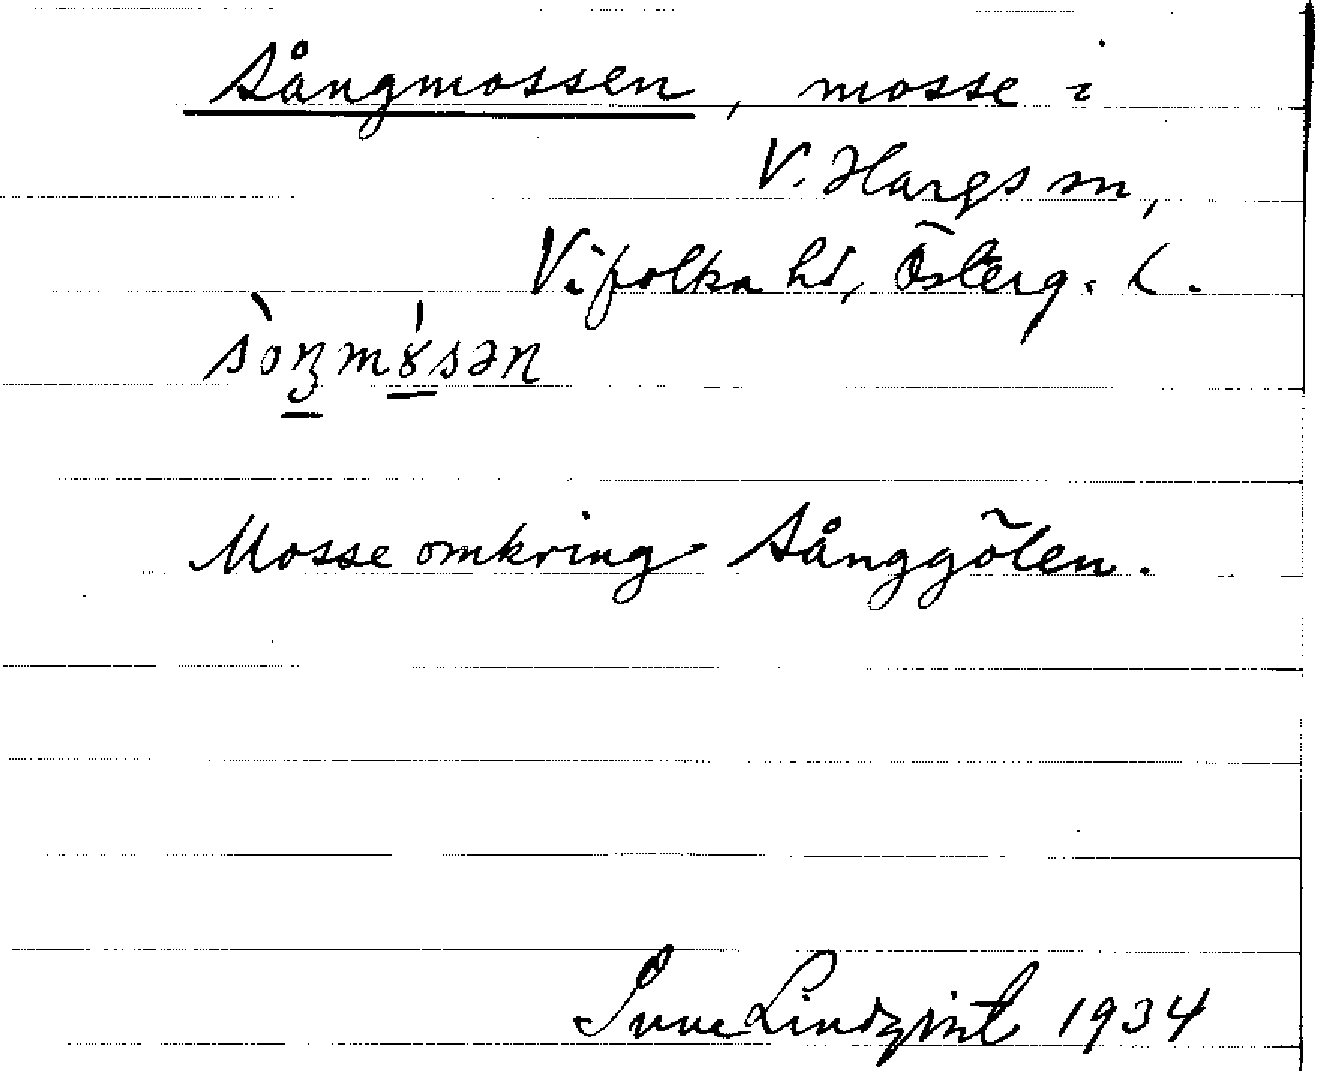 Sångmossen, mosse i
V. Hargs sn,
Vifolka hd, Österg. l.
Mosse omkring Sånggölen.
Sune Lindqvist 1934